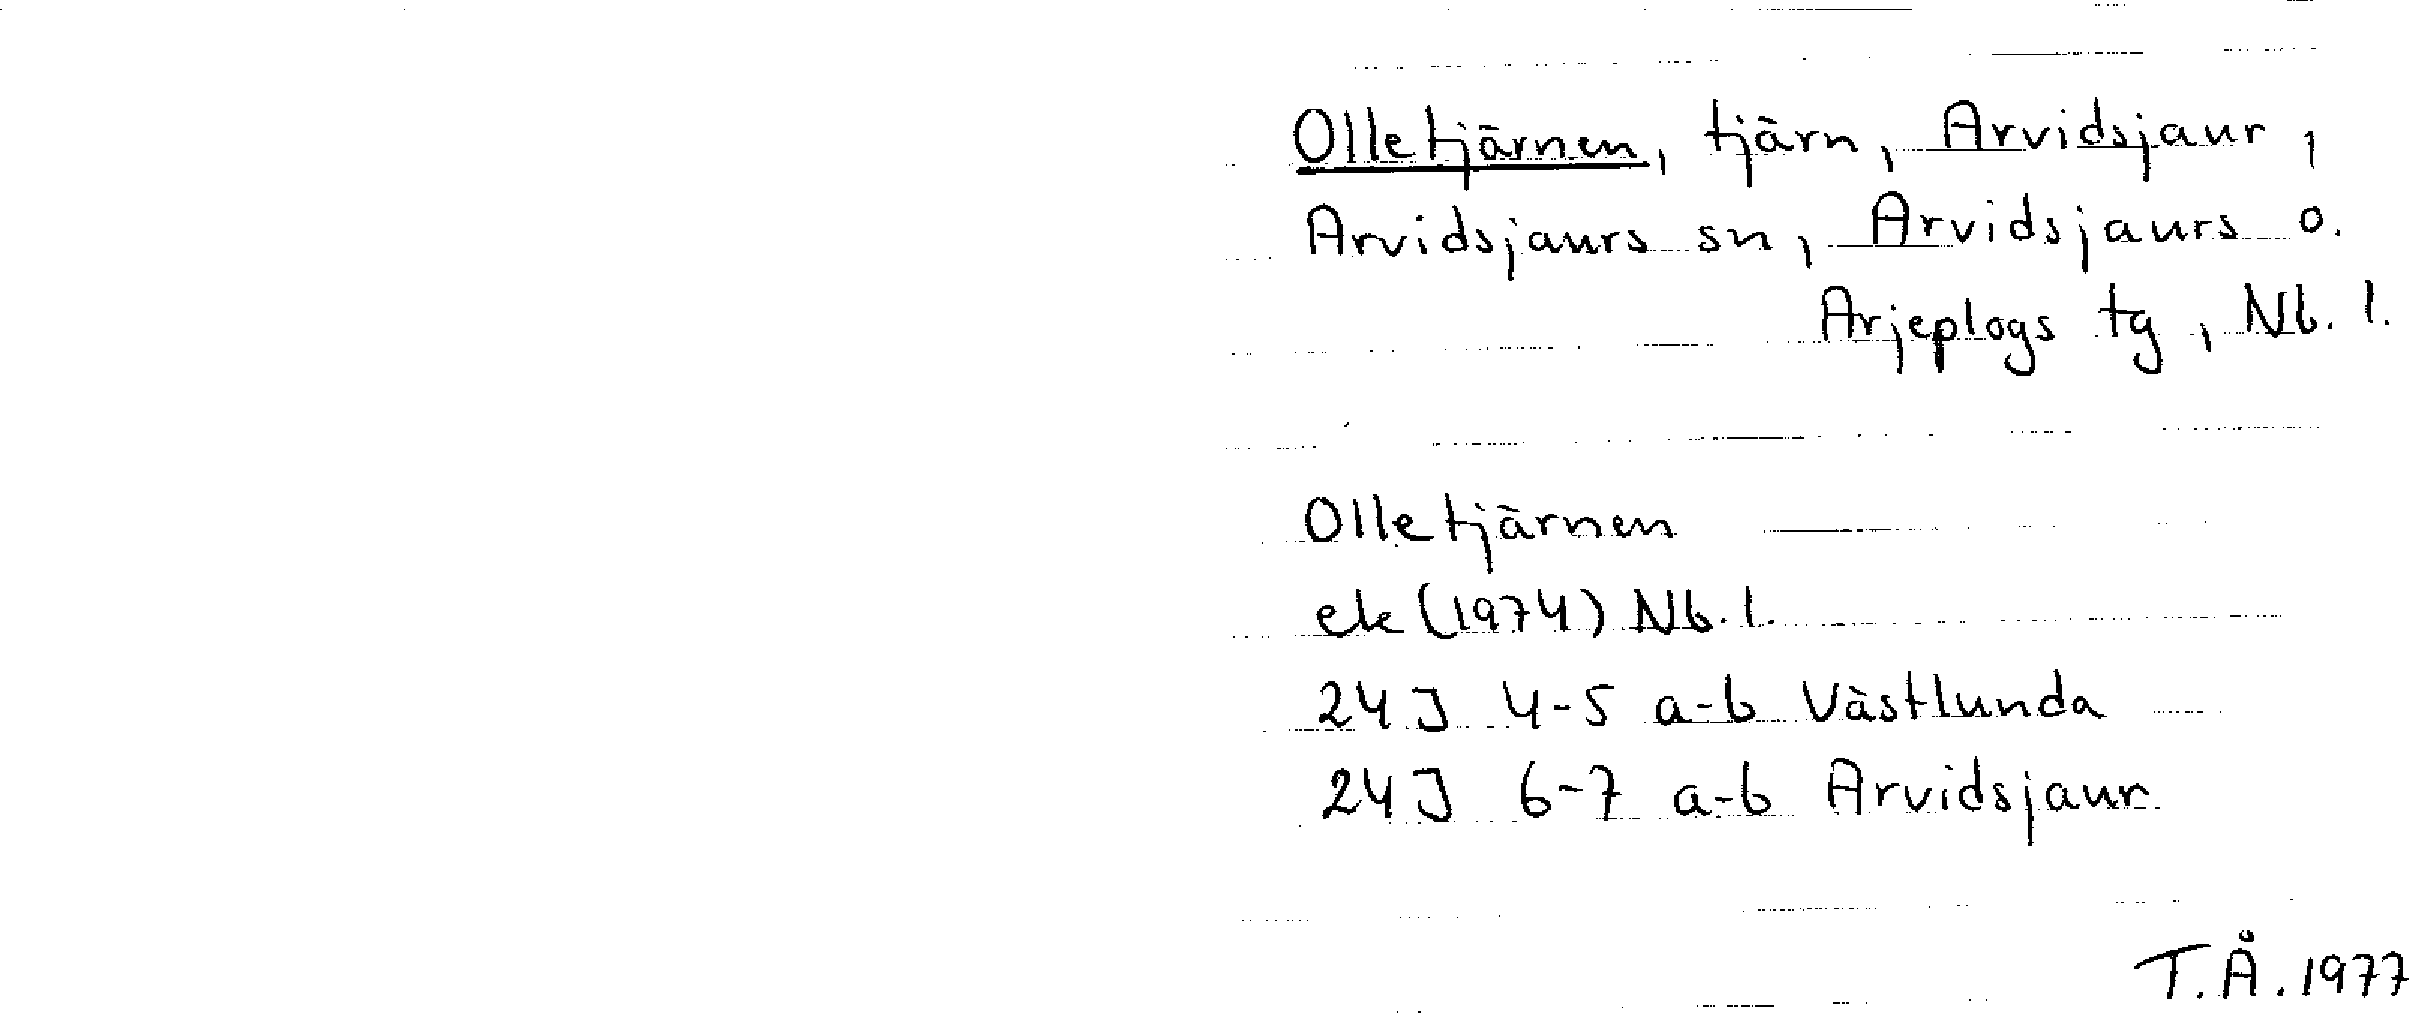 Olletjärnen, tjärn, Arvidsjaur,
Arvidsjaurs sn, Arvidsjaurs o.
Arjeplogs tg, Nb. l.
Olletjärnen
ek (1974) Nb. l.
24J 4-5 a-b Västlunda
24J 6-7 a-b Arvidsjaur
T.Å. 1977